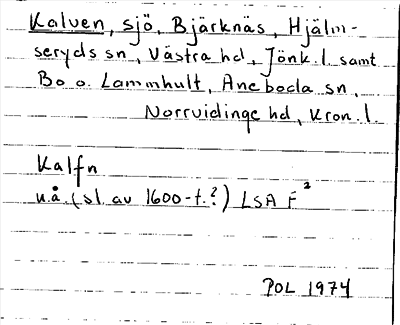 Kalven, sjö, Bjärknäs, Hjälm-
seryds sn, Västra hd, Jönk. l. samt
Bo o. Lammhult, Aneboda sn,
Norrvidinge hd, Kron. l.
Kalfn
u.å. (sl. av 1600-t.?) LSA F²
POL 1974